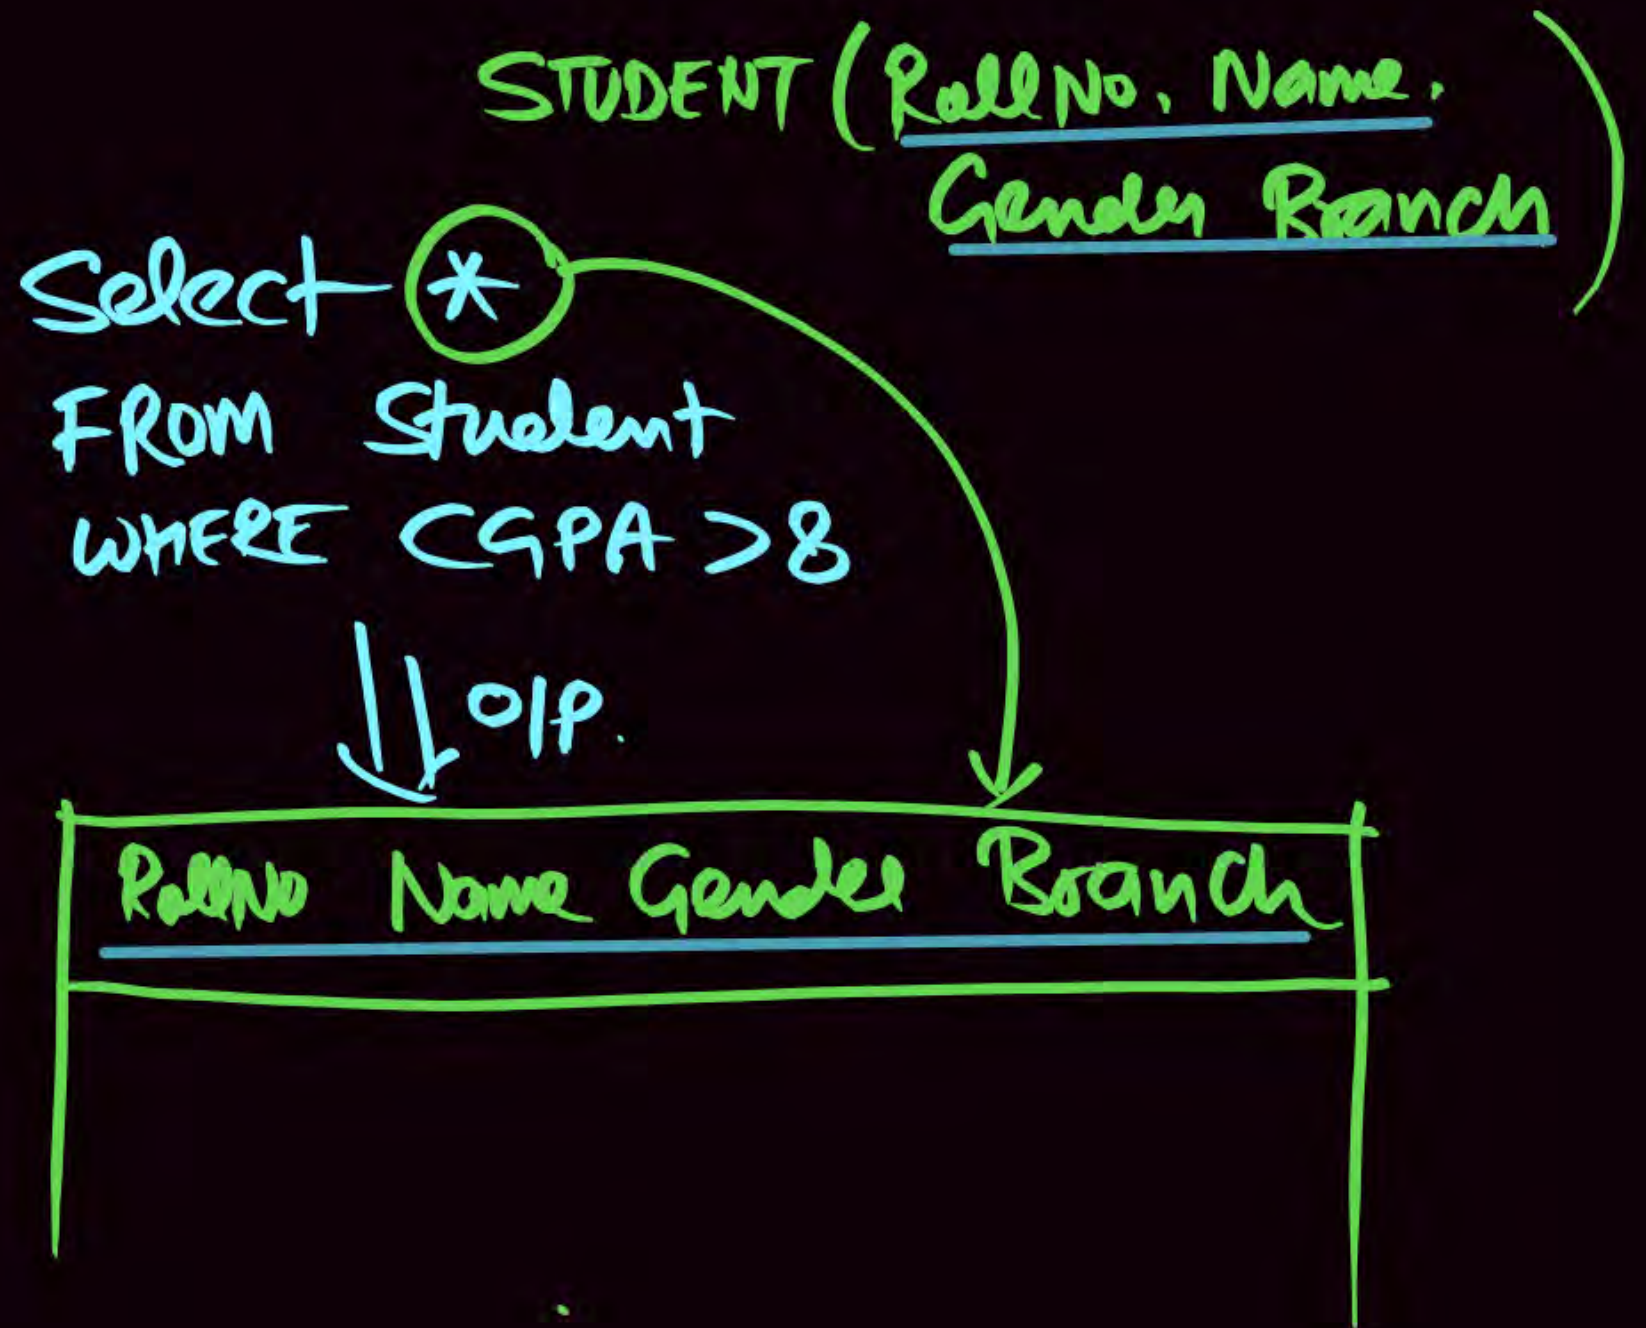 STUDENT (RollNo, Name,
Gender Branch)
Select *
FROM Student
WHERE CGPA >8
O/P.
RollNo Name Gender Branch